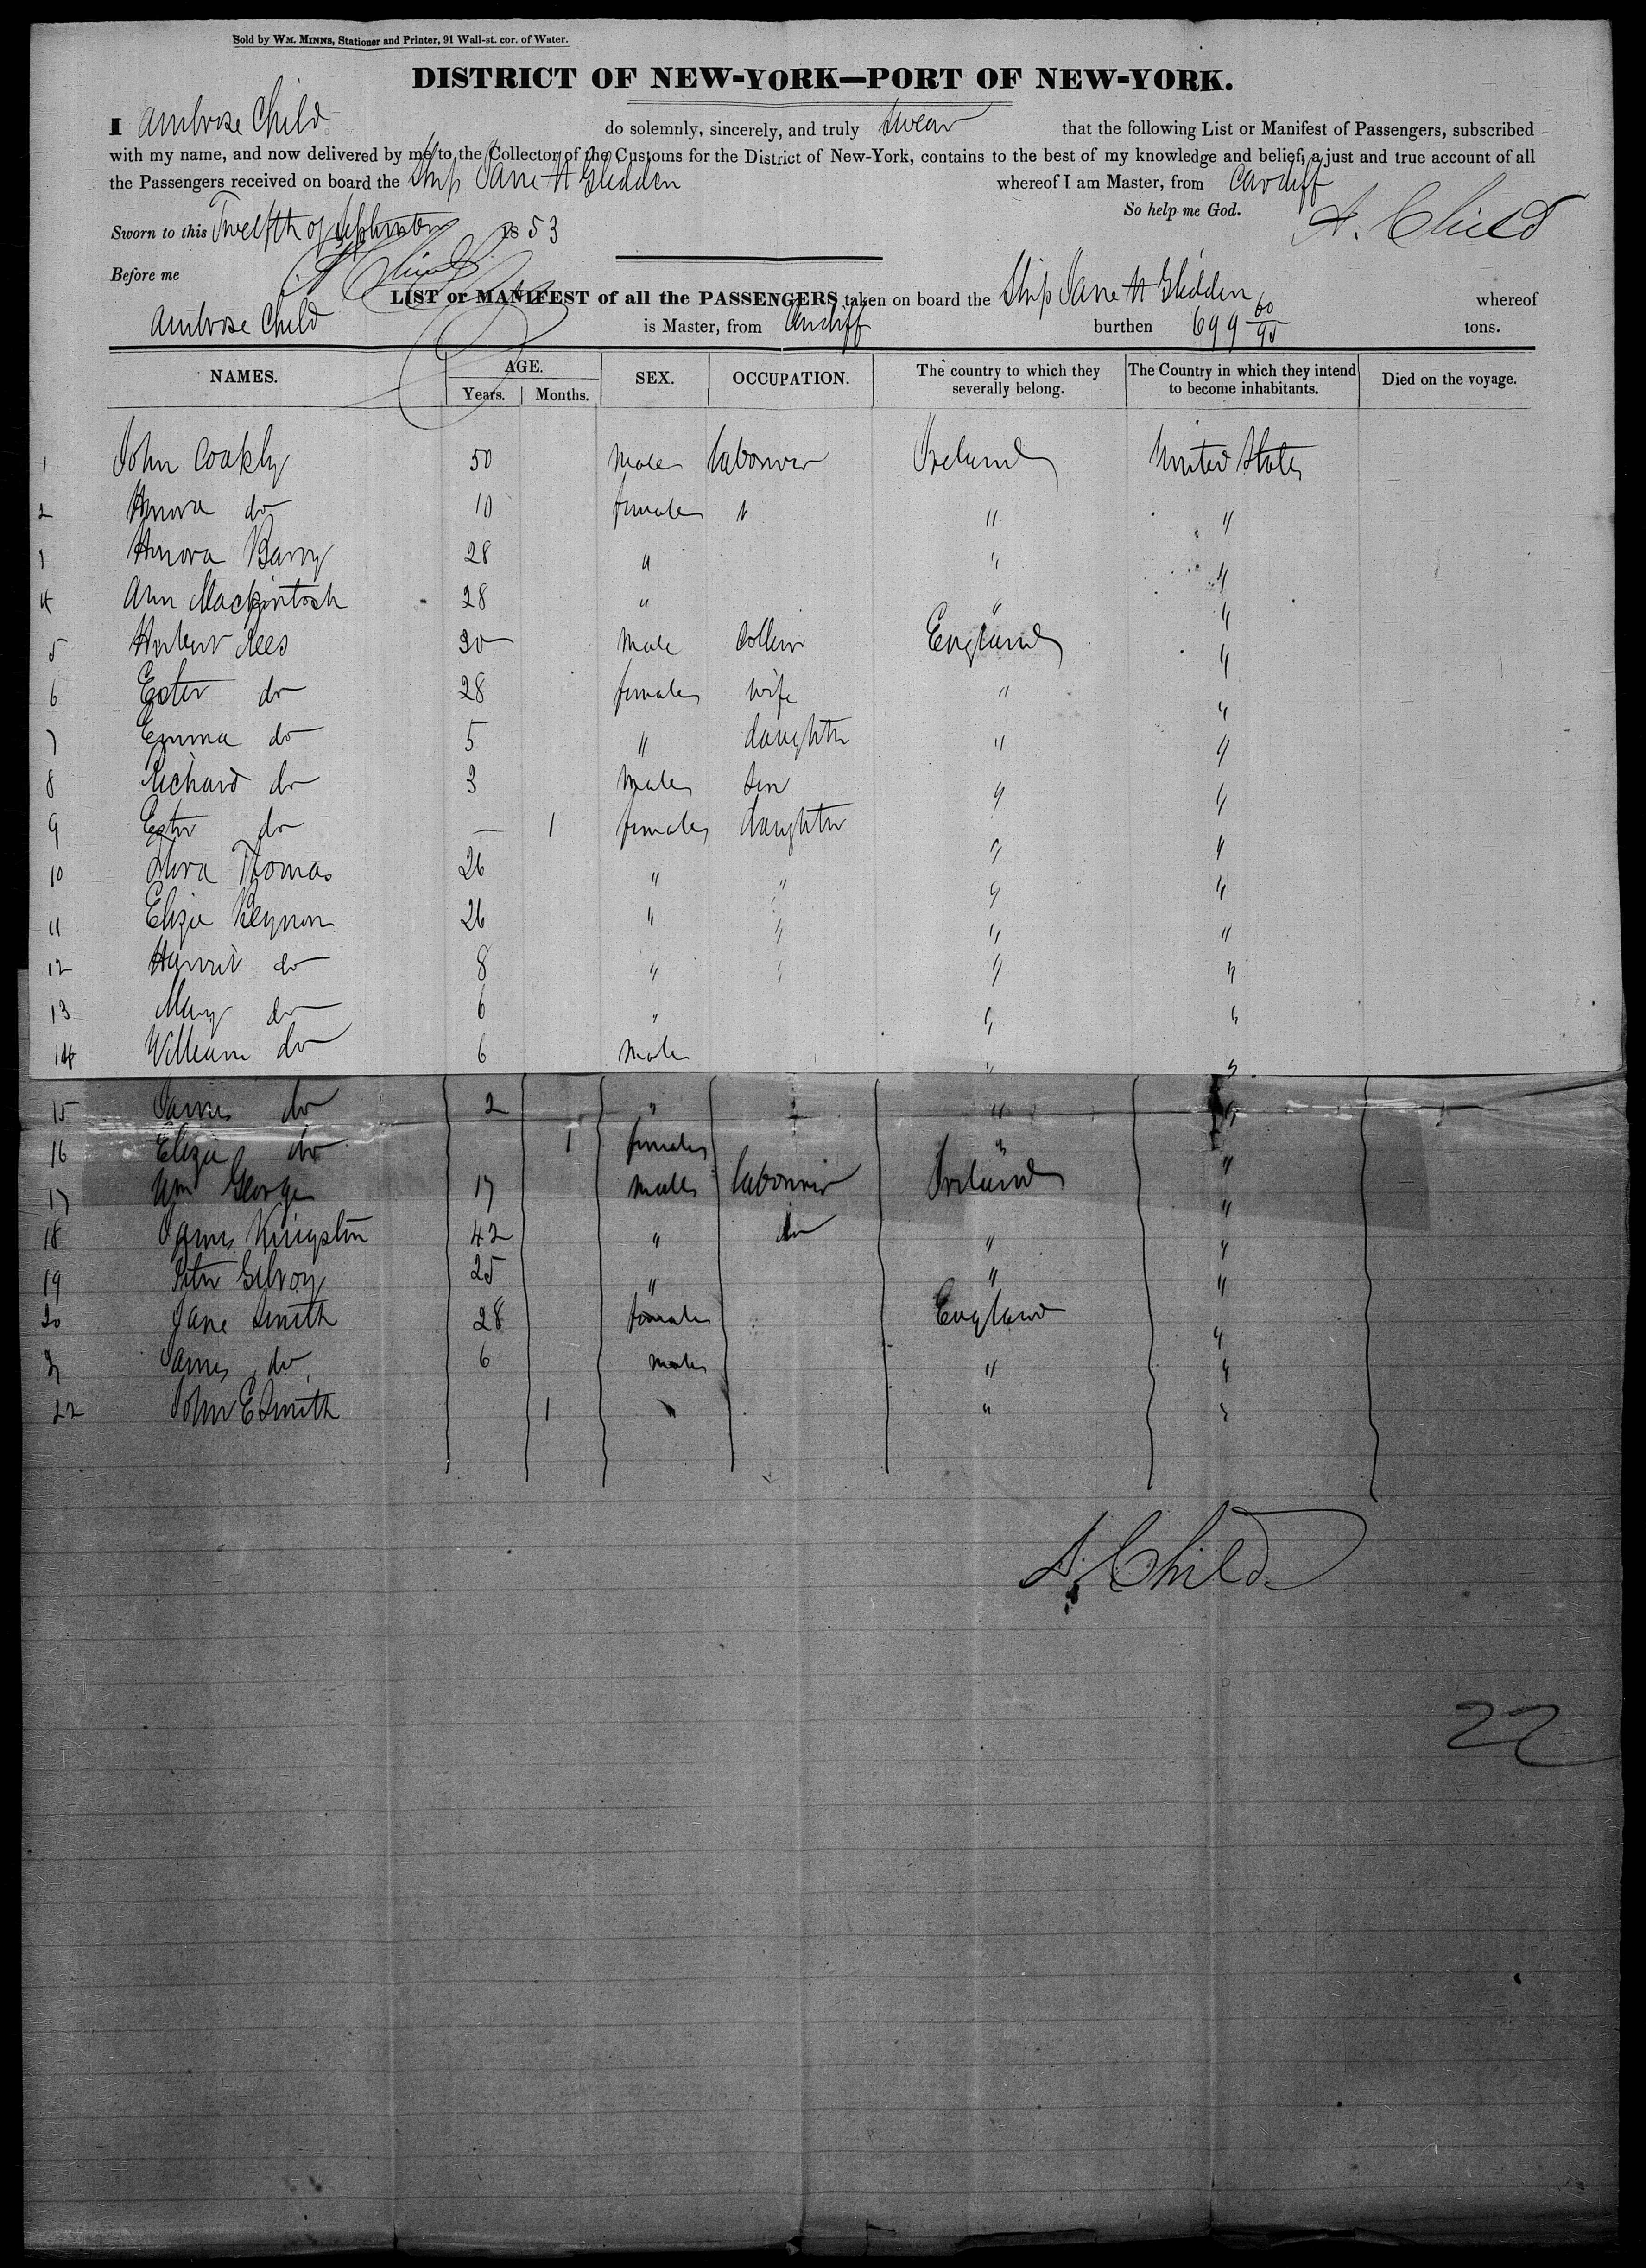 Sold by WM. MINNS, Stationer and Printer, 91 Wall-st. cor. of Water.
DISTRICT OF NEW-YORK—PORT OF NEW-YORK.
I Ambrose Child do solemnly, sincerely, and truly swear that the following List or Manifest of Passengers, subscribed
with my name, and now delivered by me to the Collector of the Customs for the District of New-York, contains to the best of my knowledge and belief, a just and true account of all
the Passengers received on board the Ship Jane H Glidden whereof I am Master, from Cardiff
So help me God. A. Child
Sworn to this Twelfth of September 1853
Before me
LIST or MANIFEST of all the PASSENGERS taken on board the Ship Jane H Glidden whereof
Ambrose Child is Master, from Cardiff burthen 699 60/95 tons.
NAMES. AGE. Years. Months. SEX. OCCUPATION. The country to which they severally belong. The Country in which they intend to become inhabitants. Died on the voyage.
1 John Coakly 50 Male labourer Ireland United States
2 Honora do 10 female " " "
3 Honora Barry 28 " " "
4 Ann Mackintosh 28 " " "
5 Herbert Rees 30 Male Collier England "
6 Ester do 28 female wife " "
7 Emma do 5 " daughter " "
8 Richard do 3 Male son " "
9 Ester do — 1 female daughter " "
10 Thomas 26 " " " "
11 Eliza Beynon 26 " " " "
12 Harriet do 8 " " " "
13 Mary do 6 " " "
14 William do 6 Male " "
15 James do 2 " " "
16 Eliza do 1 female " "
17 Wm George 17 Male labourer Ireland "
18 James Kingston 42 " do " "
19 Peter Gilroy 25 " " "
20 Jane Smith 28 female England "
21 James do 6 male " "
22 John E Smith 1 " " "
A. Child
22